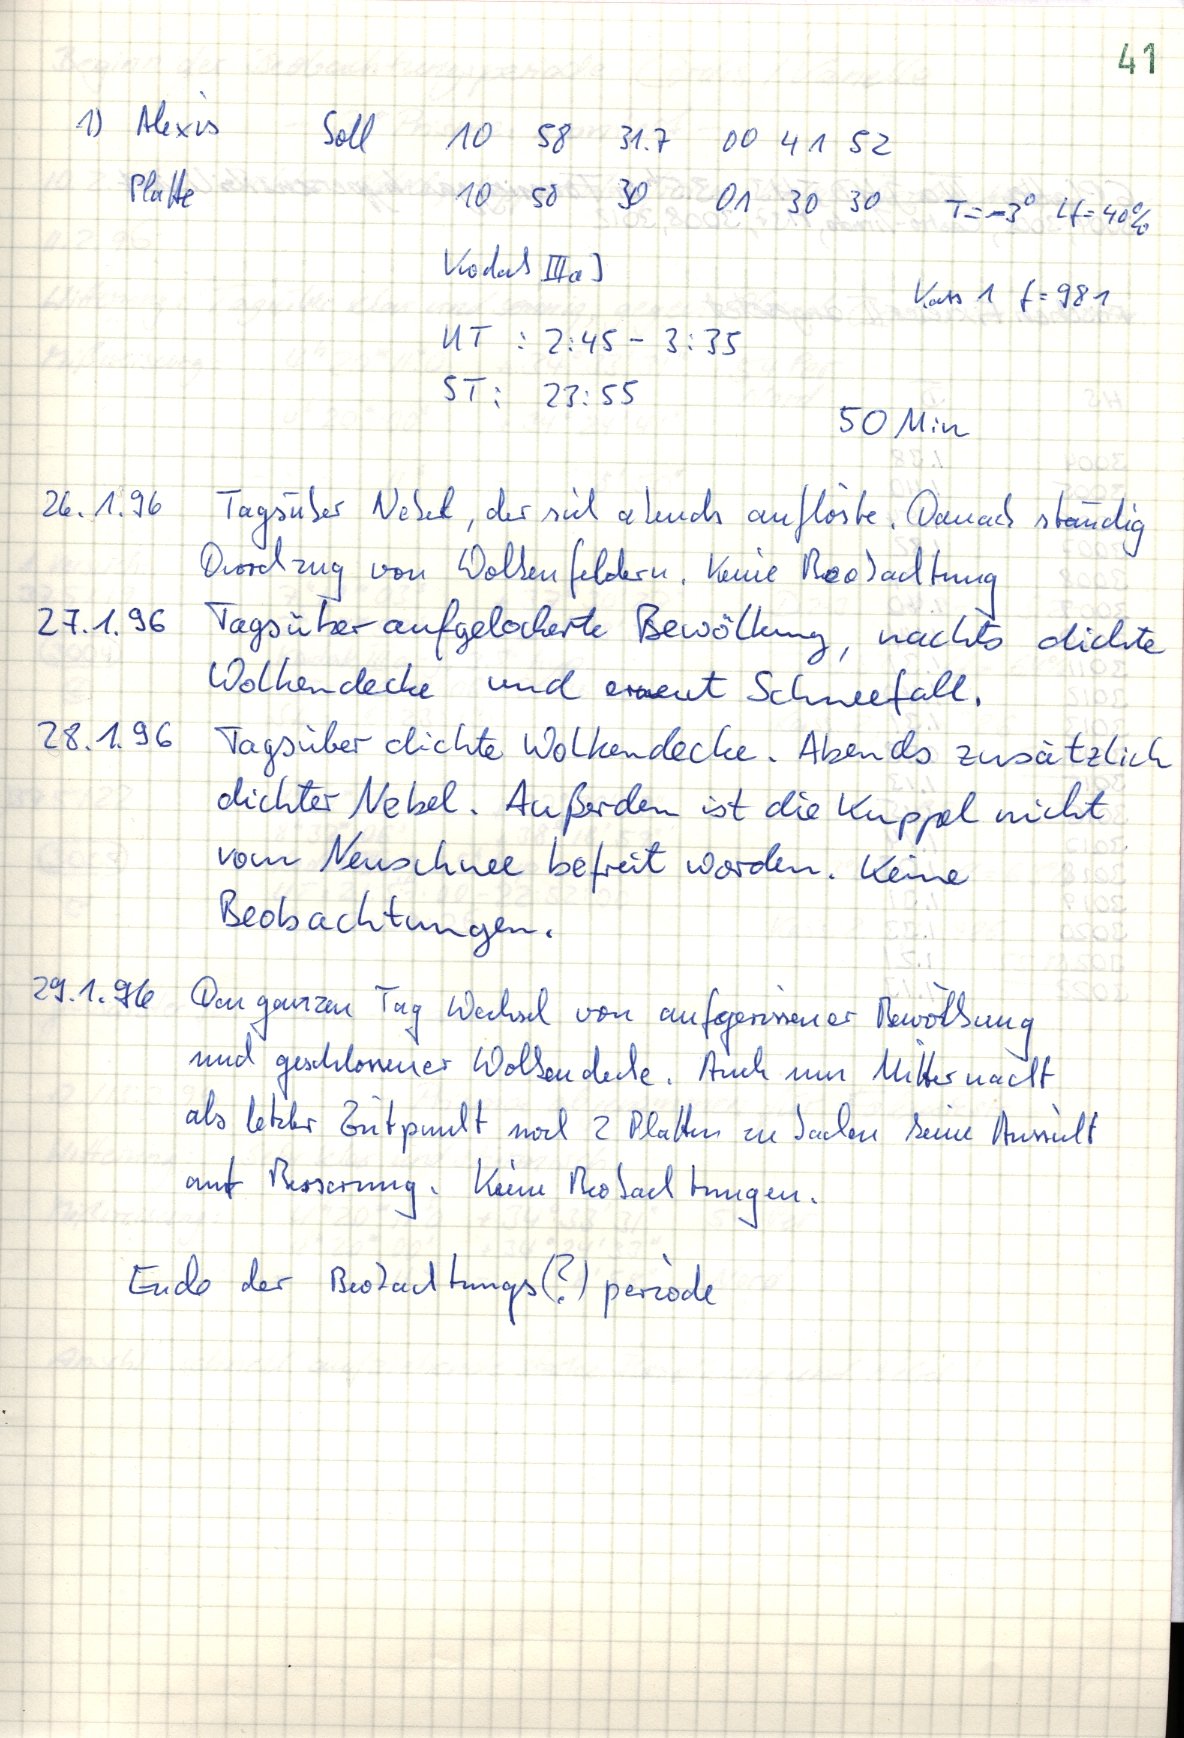 41
1) Alexis Soll 10 58 31.7 00 41 52
Platte 10 58 30 01 30 30 T=-3° Lf=40%
Kodak IIIaJ
Kass 1 f=981
UT : 2:45 - 3:35
ST: 23:55
50 Min
26.1.96 Tagsüber Nebel, der sich abends auflöste. Danach ständig
Durchzug von Wolkenfeldern. Keine Beobachtung
27.1.96 Tagsüber aufgelockerte Bewölkung, nachts dichte
Wolkendecke und erneut Schneefall.
28.1.96 Tagsüber dichte Wolkendecke. Abends zusätzlich
dichter Nebel. Außerdem ist die Kuppel nicht
vom Neuschnee befreit worden. Keine
Beobachtungen.
29.1.96 Den ganzen Tag Wechsel von aufgerissener Bewölkung
und geschlossener Wolkendecke. Auch um Mitternacht
als letzter Zeitpunkt noch 2 Platten zu backen keine Aussicht
auf Besserung. Keine Beobachtungen.
Ende der Beobachtungs(?)periode